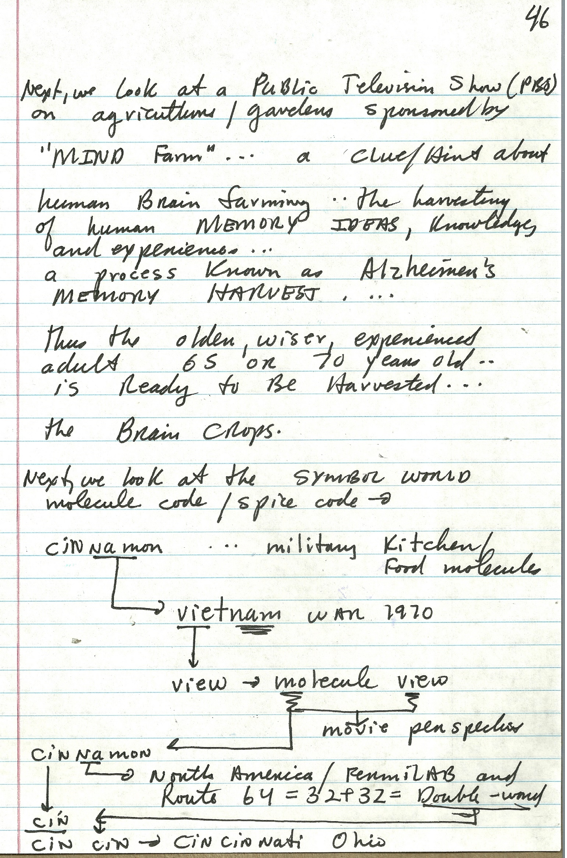 46
Next, we look at a Public Television Show (PBS)
on agricultures / gardens sponsored by
"MIND Farm" ... a clue/Hint about
human Brain farming .. the harvesting
of human MEMORY IDEAS, Knowledges
and experiences ...
a process Known as Alzheimer's
MEMORY HARVEST . ...
thus the older, wiser, experienced
adult 65 or 70 years old ..
is Ready to Be Harvested ...
the Brain Crops.
Next, we look at the SYMBOL WORLD
molecule code / spice code →
cinnamon ... military Kitchen/
Food molecules
vietnam WAR 1970
view → molecule view
movie perspective
cinnamon
North America / FermiLAB and
Route 64 = 32+32 = Double-word
cin
cin cin → Cincinnati Ohio